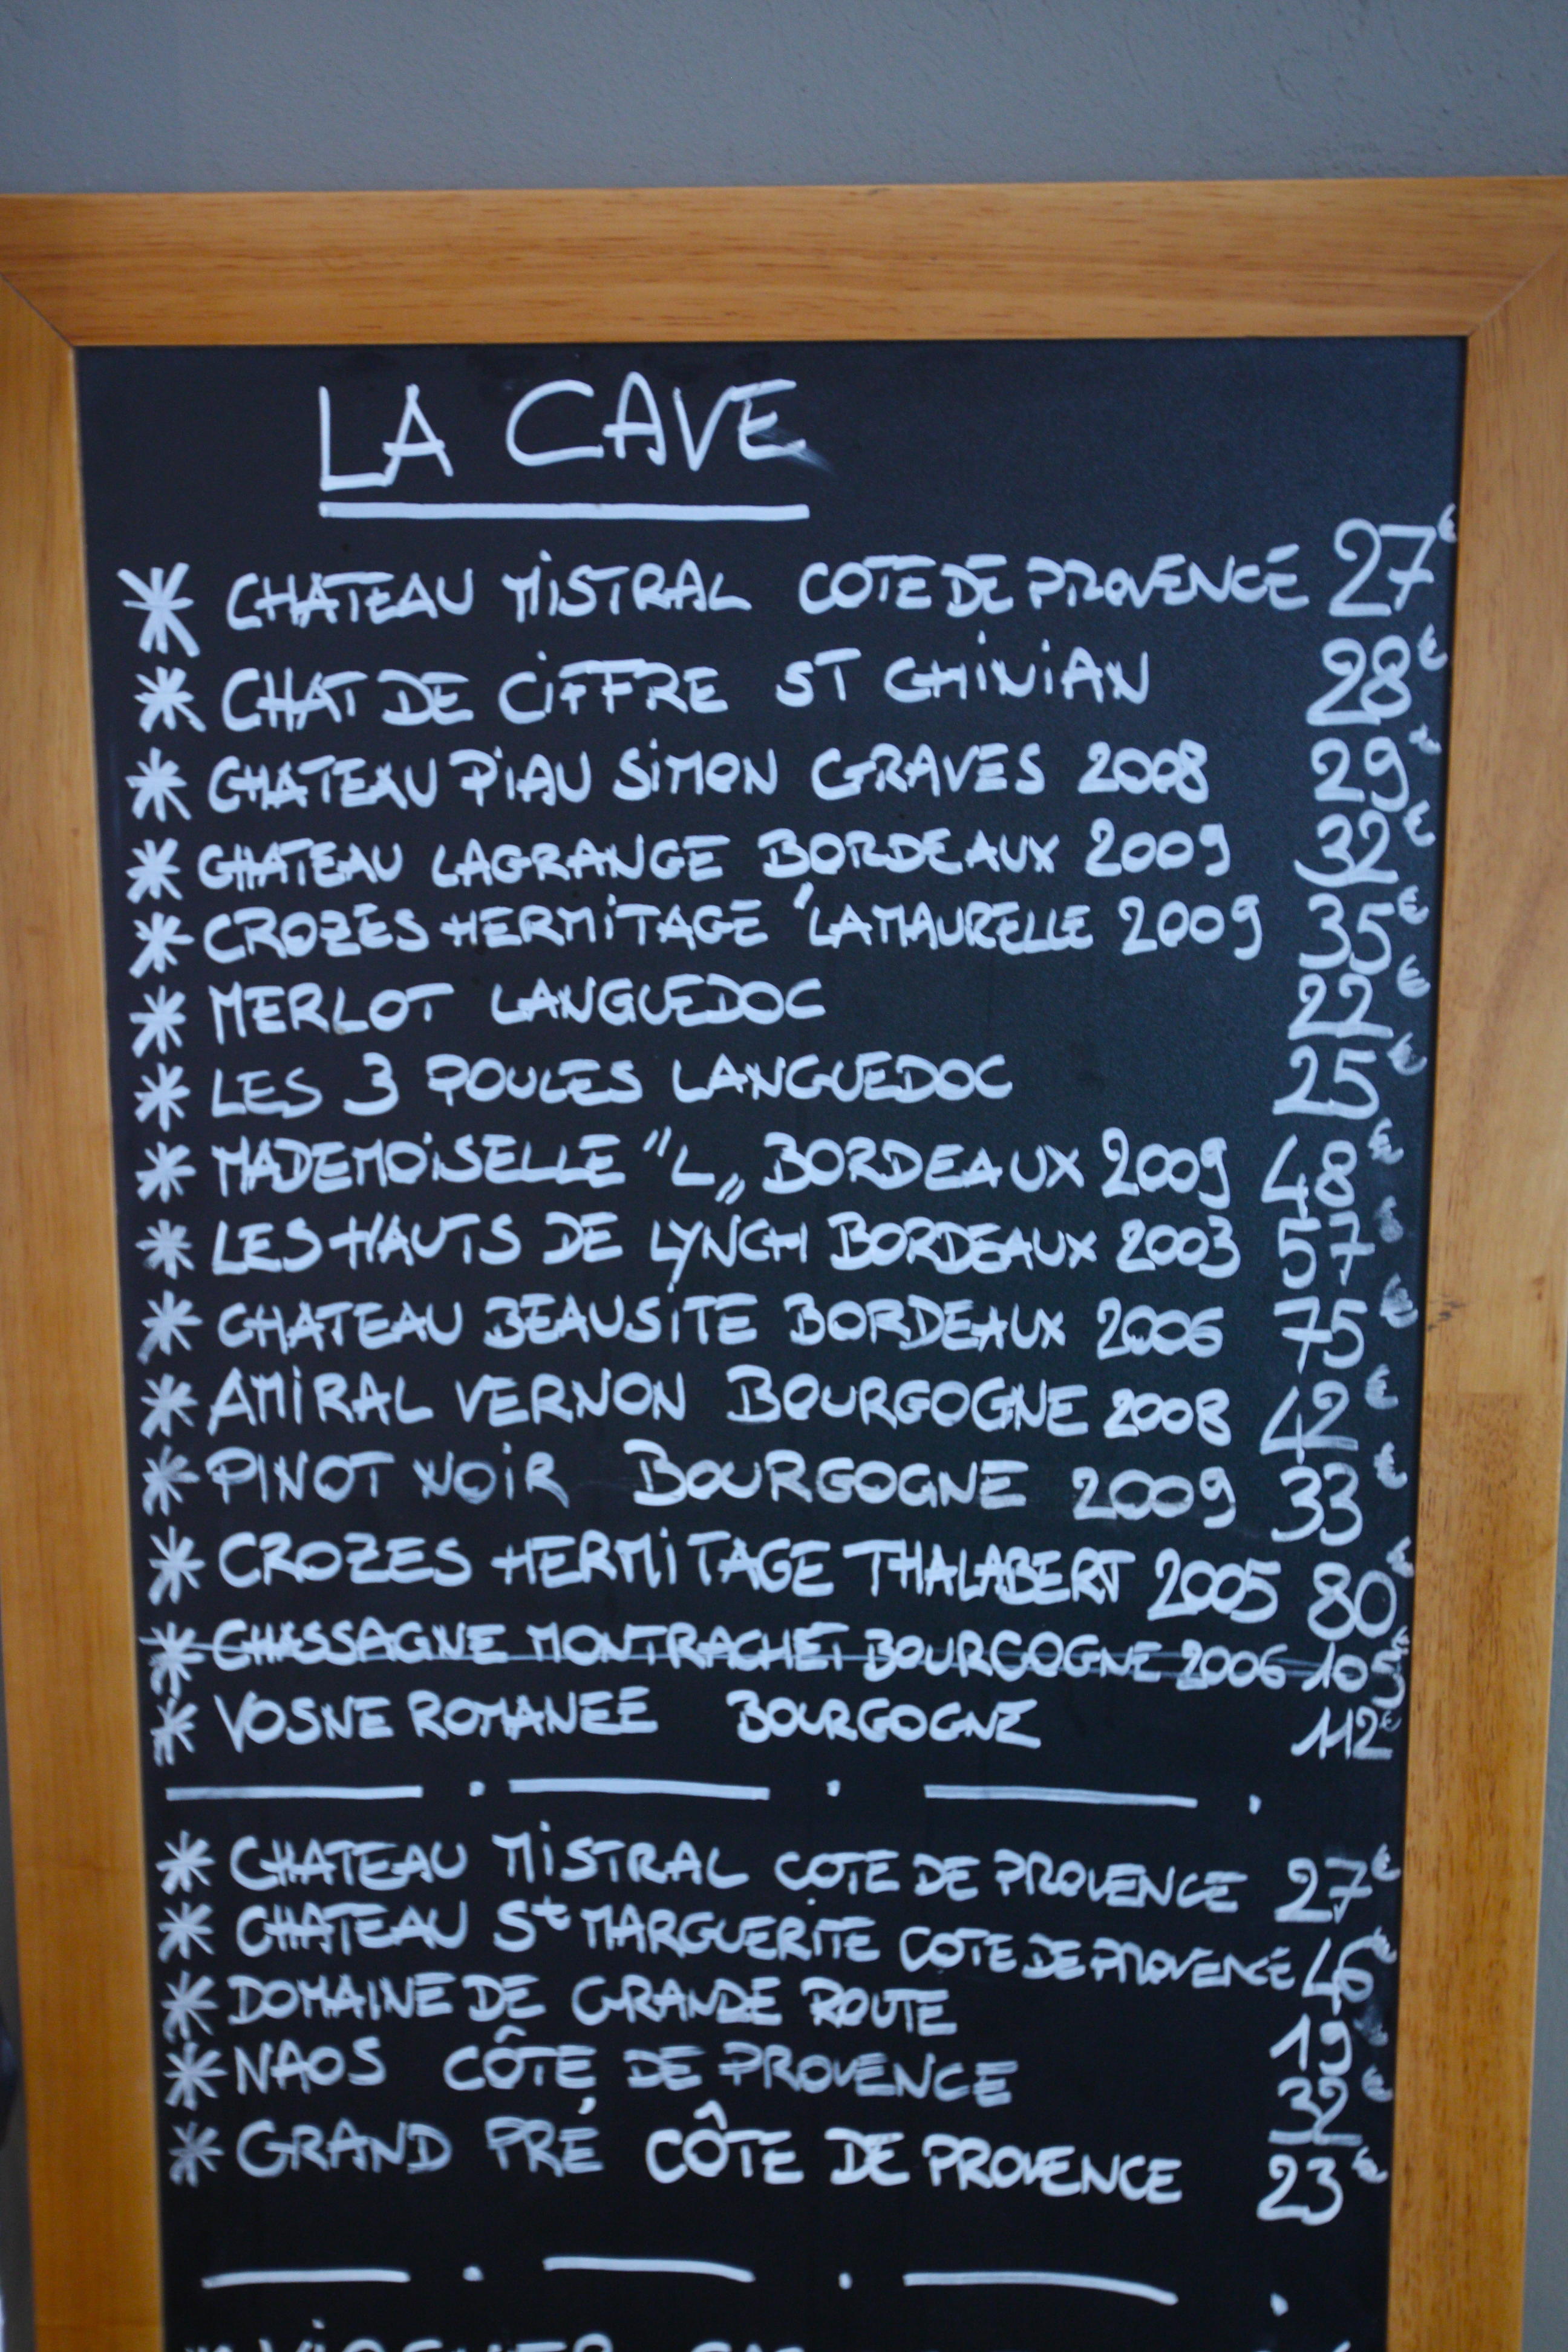 LA CAVE
* CHATEAU MISTRAL COTE DE PROVENCE 27€
* CHAT DE CIFFRE ST CHINIAN 28€
* CHATEAU PIAU SIMON GRAVES 2008 29€
* CHATEAU LAGRANGE BORDEAUX 2009 32€
* CROZES HERMITAGE 'LAMAURELLE 2009 35€
* MERLOT LANGUEDOC 22€
* LES 3 POULES LANGUEDOC 25€
* MADEMOISELLE "L" BORDEAUX 2009 48€
* LES HAUTS DE LYNCH BORDEAUX 2003 57€
* CHATEAU BEAUSITE BORDEAUX 2006 75€
* AMIRAL VERNON BOURGOGNE 2008 42€
* PINOT NOIR BOURGOGNE 2009 33€
* CROZES HERMITAGE THALABERT 2005 80€
* CHASSAGNE MONTRACHET BOURGOGNE 2006 105€
* VOSNE ROMANEE BOURGOGNE 112€
* CHATEAU MISTRAL COTE DE PROVENCE 27€
* CHATEAU St MARGUERITE COTE DE PROVENCE 46€
* DOMAINE DE GRANDE ROUTE 19€
* NAOS CÔTE DE PROVENCE 32€
* GRAND PRÉ CÔTE DE PROVENCE 23€